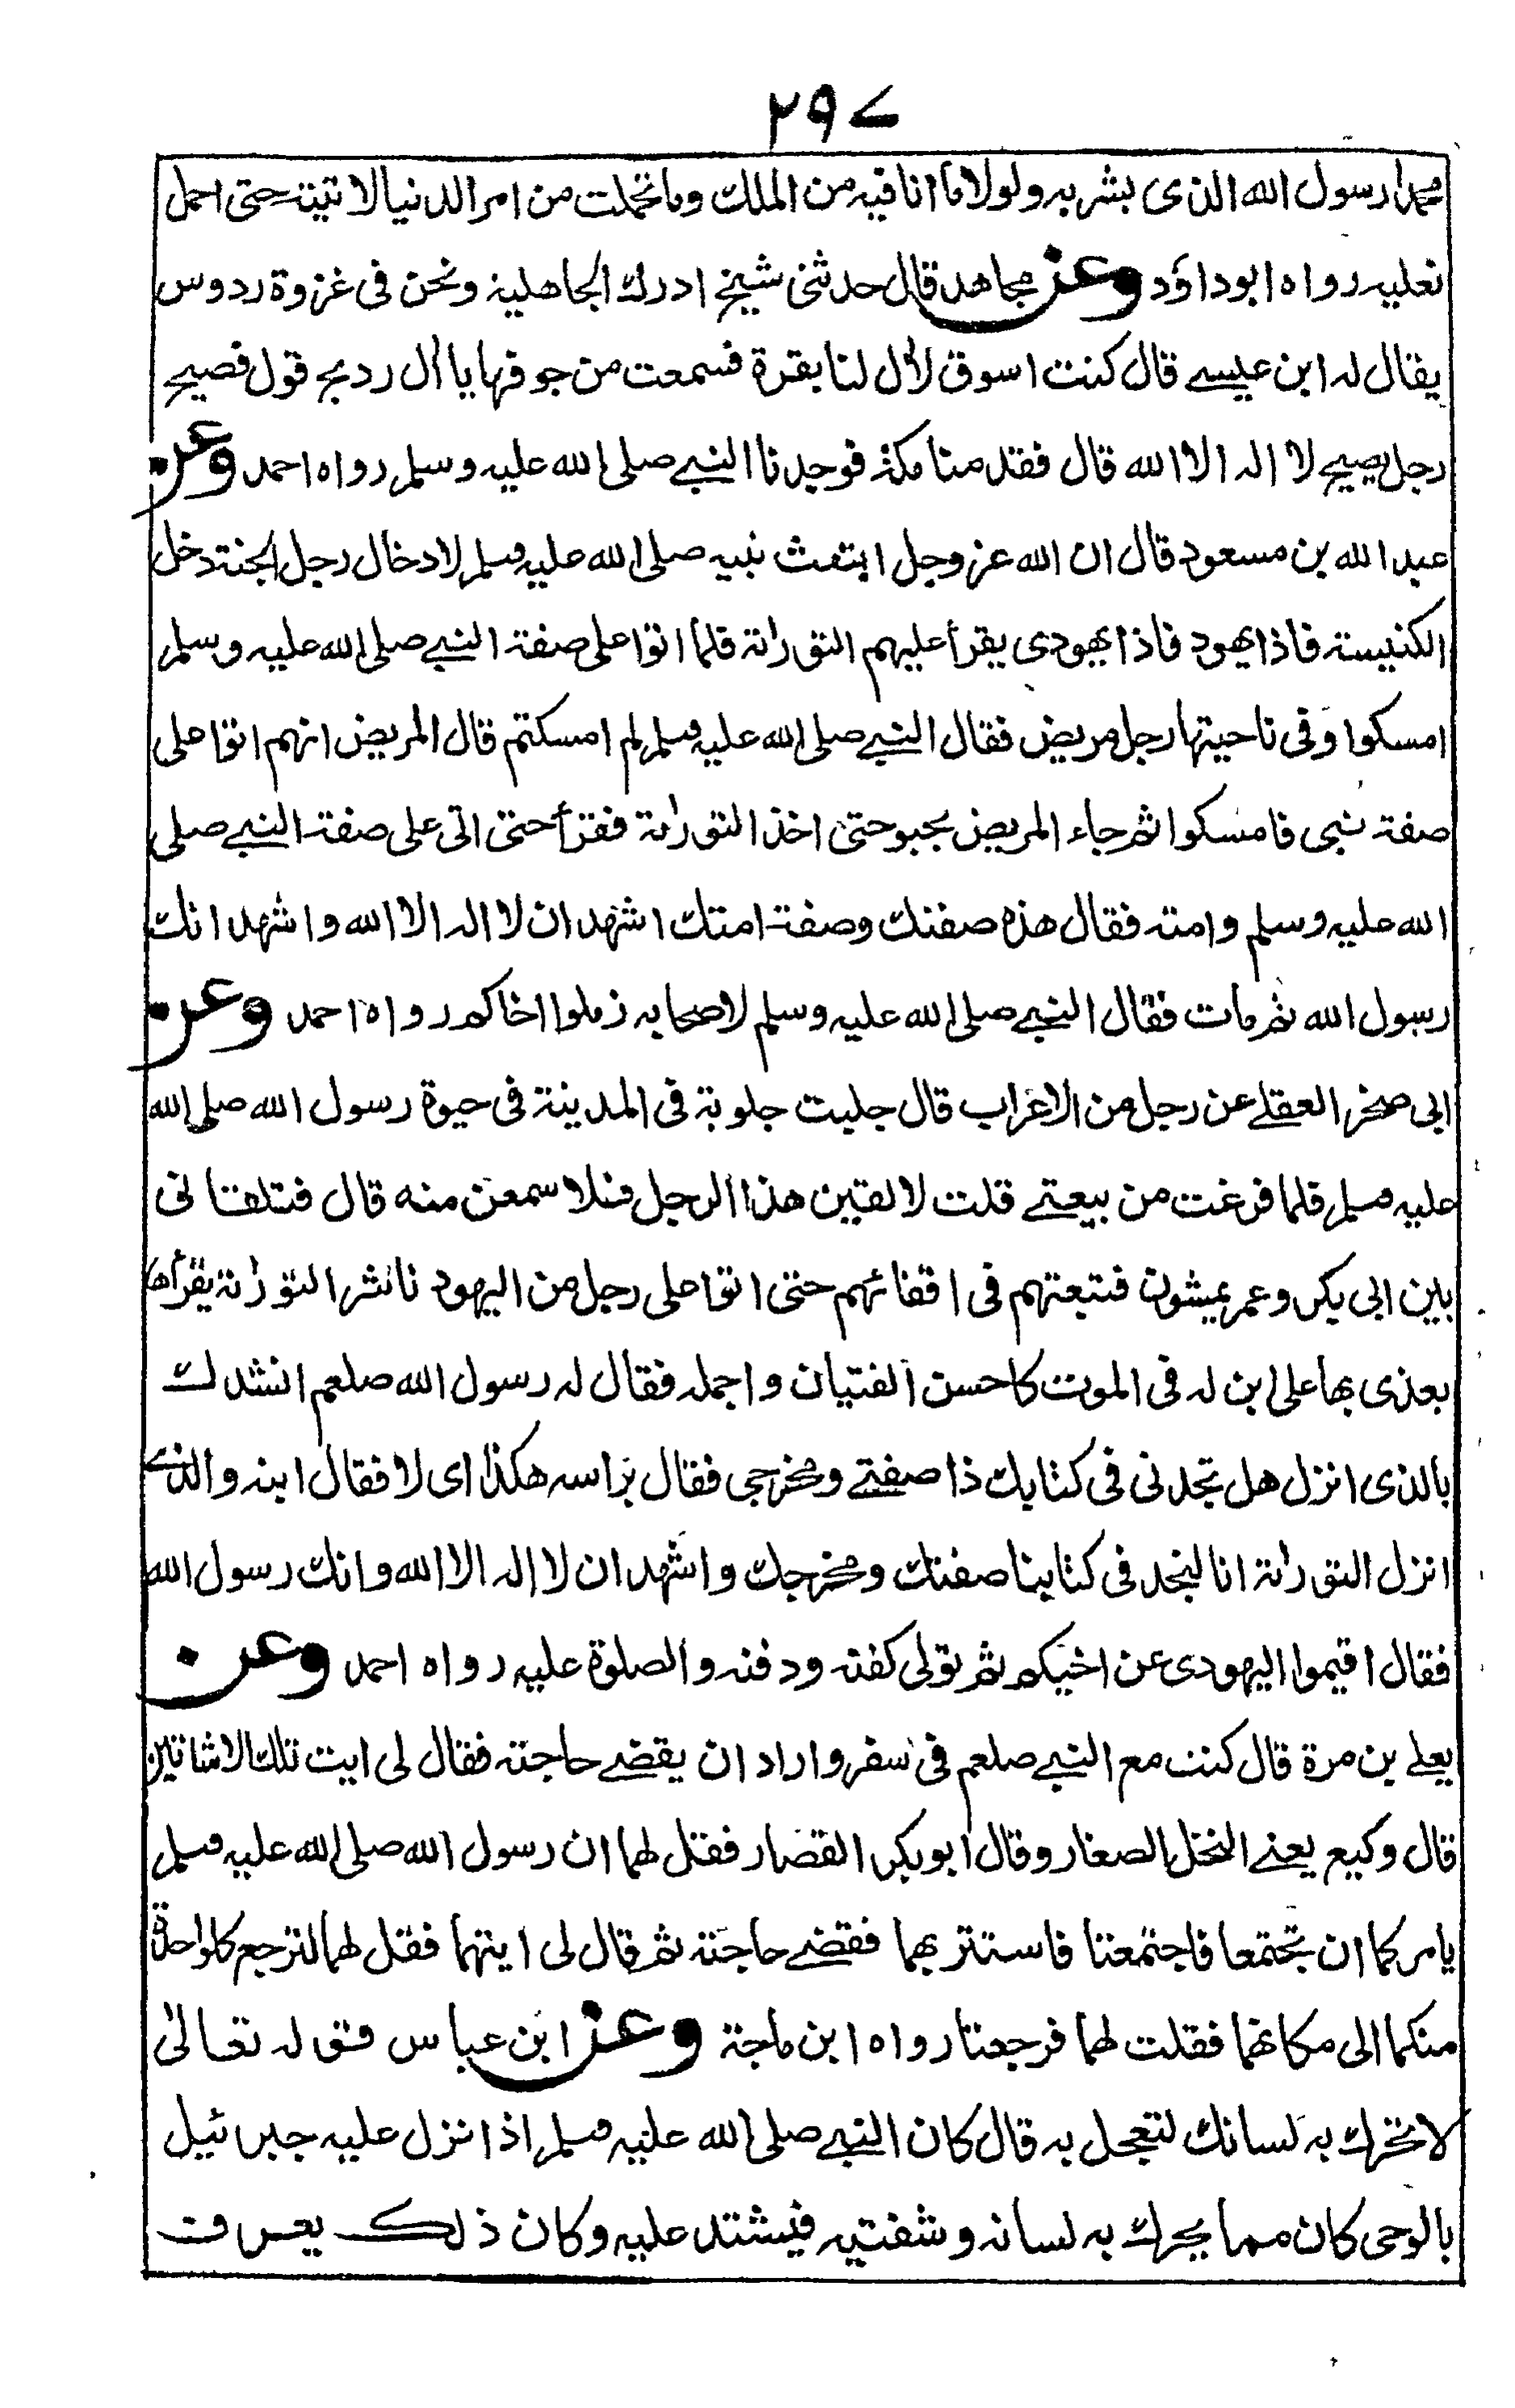 ٢٩٧
محمدا رسول الله الذى بشر به ولولا ما انا فيه من الملك وما تحملت من امر الدنيا لاتيته حتى احمل
نعليه رواه ابوداؤد وعن مجاهد قال حدثنى شيخ ادرك الجاهلية ونحن فى غزوة ردوس
يقال له ابن عيسے قال كنت اسوق لاٰل لنا بقرة فسمعت من جوفها يا اٰل ردىح قول فصيح
رجل يصيح لا اله الا الله قال فقدمنا مكة فوجدنا النبے صلى الله عليه وسلم رواه احمد وعن
عبد الله بن مسعود قال ان الله عز وجل ابتعث نبيه صلى الله عليه وسلم لادخال رجل الجنة دخل
الكنيسة فاذا يهود فاذا يهودى يقرأ عليهم التورٰىة فلما اتوا على صفة النبے صلى الله عليه وسلم
امسكوا وفى ناحيتها رجل مريض فقال النبے صلى الله عليه وسلم لم امسكتم قال المريض انهم اتوا على
صفة نبى فامسكوا ثم جاء المريض يحبو حتى اخذ التورٰىة فقرأ حتى اتى على صفة النبے صلى
الله عليه وسلم وامته فقال هذه صفتك وصفة امتك اشهد ان لا اله الا الله واشهد انك
رسول الله ثم مات فقال النبے صلى الله عليه وسلم لاصحابه زملوا اخاكم رواه احمد وعن
ابى صخر العقلے عن رجل من الاعراب قال جلبت جلوبة فى المدينة فى حيوة رسول الله صلى الله
عليه وسلم فلما فرغت من بيعتے قلت لالقين هذا الرجل فلاسمعن منه قال فتلقانى
بين ابى بكر وعمر يمشون فتبعتهم فى اقفائهم حتى اتوا على رجل من اليهود ناشر التورٰىة يقرأها
يعزى بها على ابن له فى الموت كاحسن الفتيان واجمله فقال له رسول الله صلعم انشدك
بالذى انزل هل تجدنى فى كتابك ذا صفتے ومخرجى فقال براسه هكذا اى لا فقال ابنه والذے
انزل التورٰىة انا لنجد فى كتابنا صفتك ومخرجك واشهد ان لا اله الا الله وانك رسول الله
فقال اقيموا اليهودى عن اخيكم ثم تولى كفنه ودفنه والصلوة عليه رواه احمد وعن
يعلے بن مرة قال كنت مع النبے صلعم فى سفر واراد ان يقضے حاجته فقال لى ايت تلك الاشاتين
قال وكيع يعنے النخل الصغار وقال ابو بكر القصار فقل لهما ان رسول الله صلى الله عليه وسلم
يامركما ان تجتمعا فاجتمعتا فاستتر بهما فقضے حاجته ثم قال لى ايتهما فقل لهما لترجع كلواحدة
منكما الى مكانها فقلت لهما فرجعتا رواه ابن ماجة وعن ابن عباس فى قوله تعالٰى
لا تحرك به لسانك لتعجل به قال كان النبے صلى الله عليه وسلم اذا نزل عليه جبرائيل
بالوحى كان مما يحرك به لسانه وشفتيه فيشتد عليه وكان ذلك يعرف